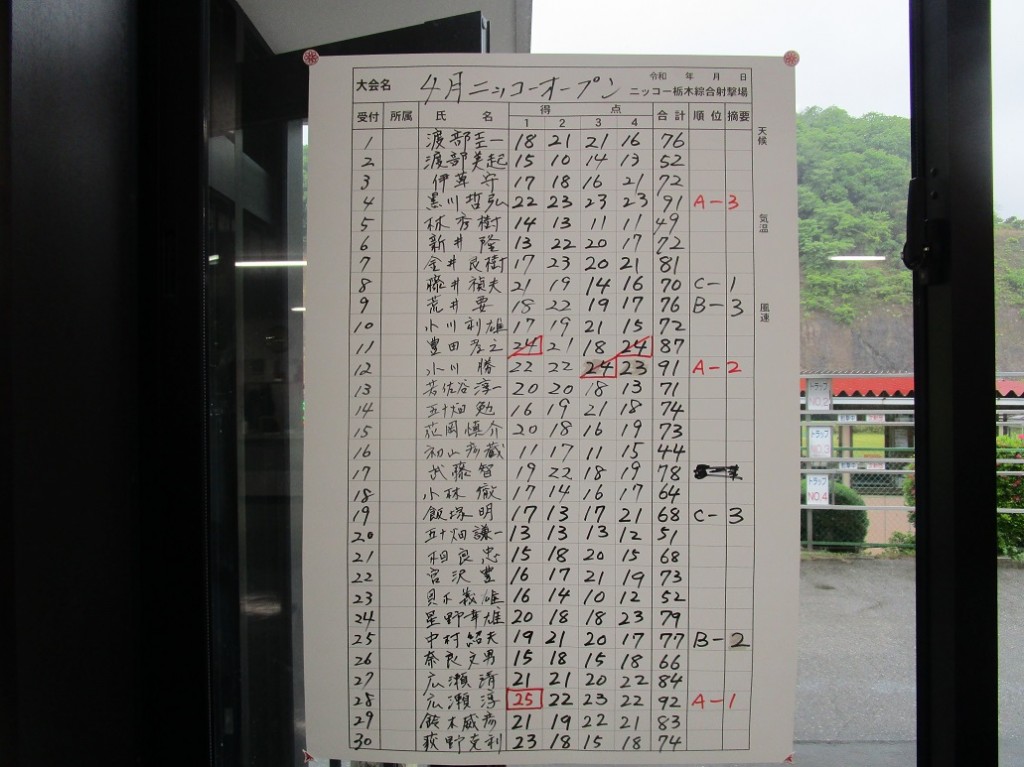 大会名 4月ニッコーオープン 令和 年 月 日
ニッコー栃木綜合射撃場
受付 所属 氏 名 得 点 合計 順位 摘要
1 2 3 4
1 渡部圭一 18 21 21 16 76
2 渡部美起 15 10 14 13 52
3 伊草 守 17 18 16 21 72
4 黒川哲弘 22 23 23 23 91 A-3
5 林秀樹 14 13 11 11 49
6 新井 隆 13 22 20 17 72
7 金井良樹 17 23 20 21 81
8 藤井禎夫 21 19 14 16 70 C-1
9 荒井 要 18 22 19 17 76 B-3
10 小川利雄 17 19 21 15 72
11 豊田孝之 24 21 18 24 87
12 小川 勝 22 22 24 23 91 A-2
13 若佐谷淳一 20 20 18 13 71
14 五十畑 勉 16 19 21 18 74
15 花岡慎介 20 18 16 19 73
16 初山彦蔵 11 17 11 15 44
17 武藤 智 19 22 18 19 78
18 小林 徹 17 14 16 17 64
19 飯塚 明 17 13 17 21 68 C-3
20 五十畑謙一 13 13 13 12 51
21 相良 忠 15 18 20 15 68
22 宮沢 豊 16 17 21 19 73
23 義雄 16 14 10 12 52
24 星野幸雄 20 18 18 23 79
25 中村紹夫 19 21 20 17 77 B-2
26 奈良文男 15 18 15 18 66
27 広瀬 清 21 21 20 22 84
28 広瀬 淳 25 22 23 22 92 A-1
29 鈴木威彦 21 19 22 21 83
30 荻野克利 23 18 15 18 74
天候
気温
風速
トラップ
トラップ
トラップ
NO.4